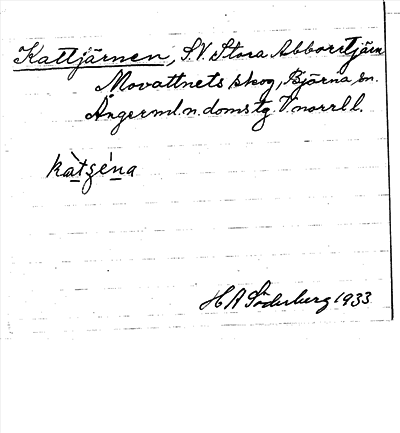 Kattjärnen, S.V. Stora Abborrtjärn
Movattnets skog, Björna sn.
Ångerml. n. domstg. V norrl l.
kàtʒéna
H A Söderberg 1933